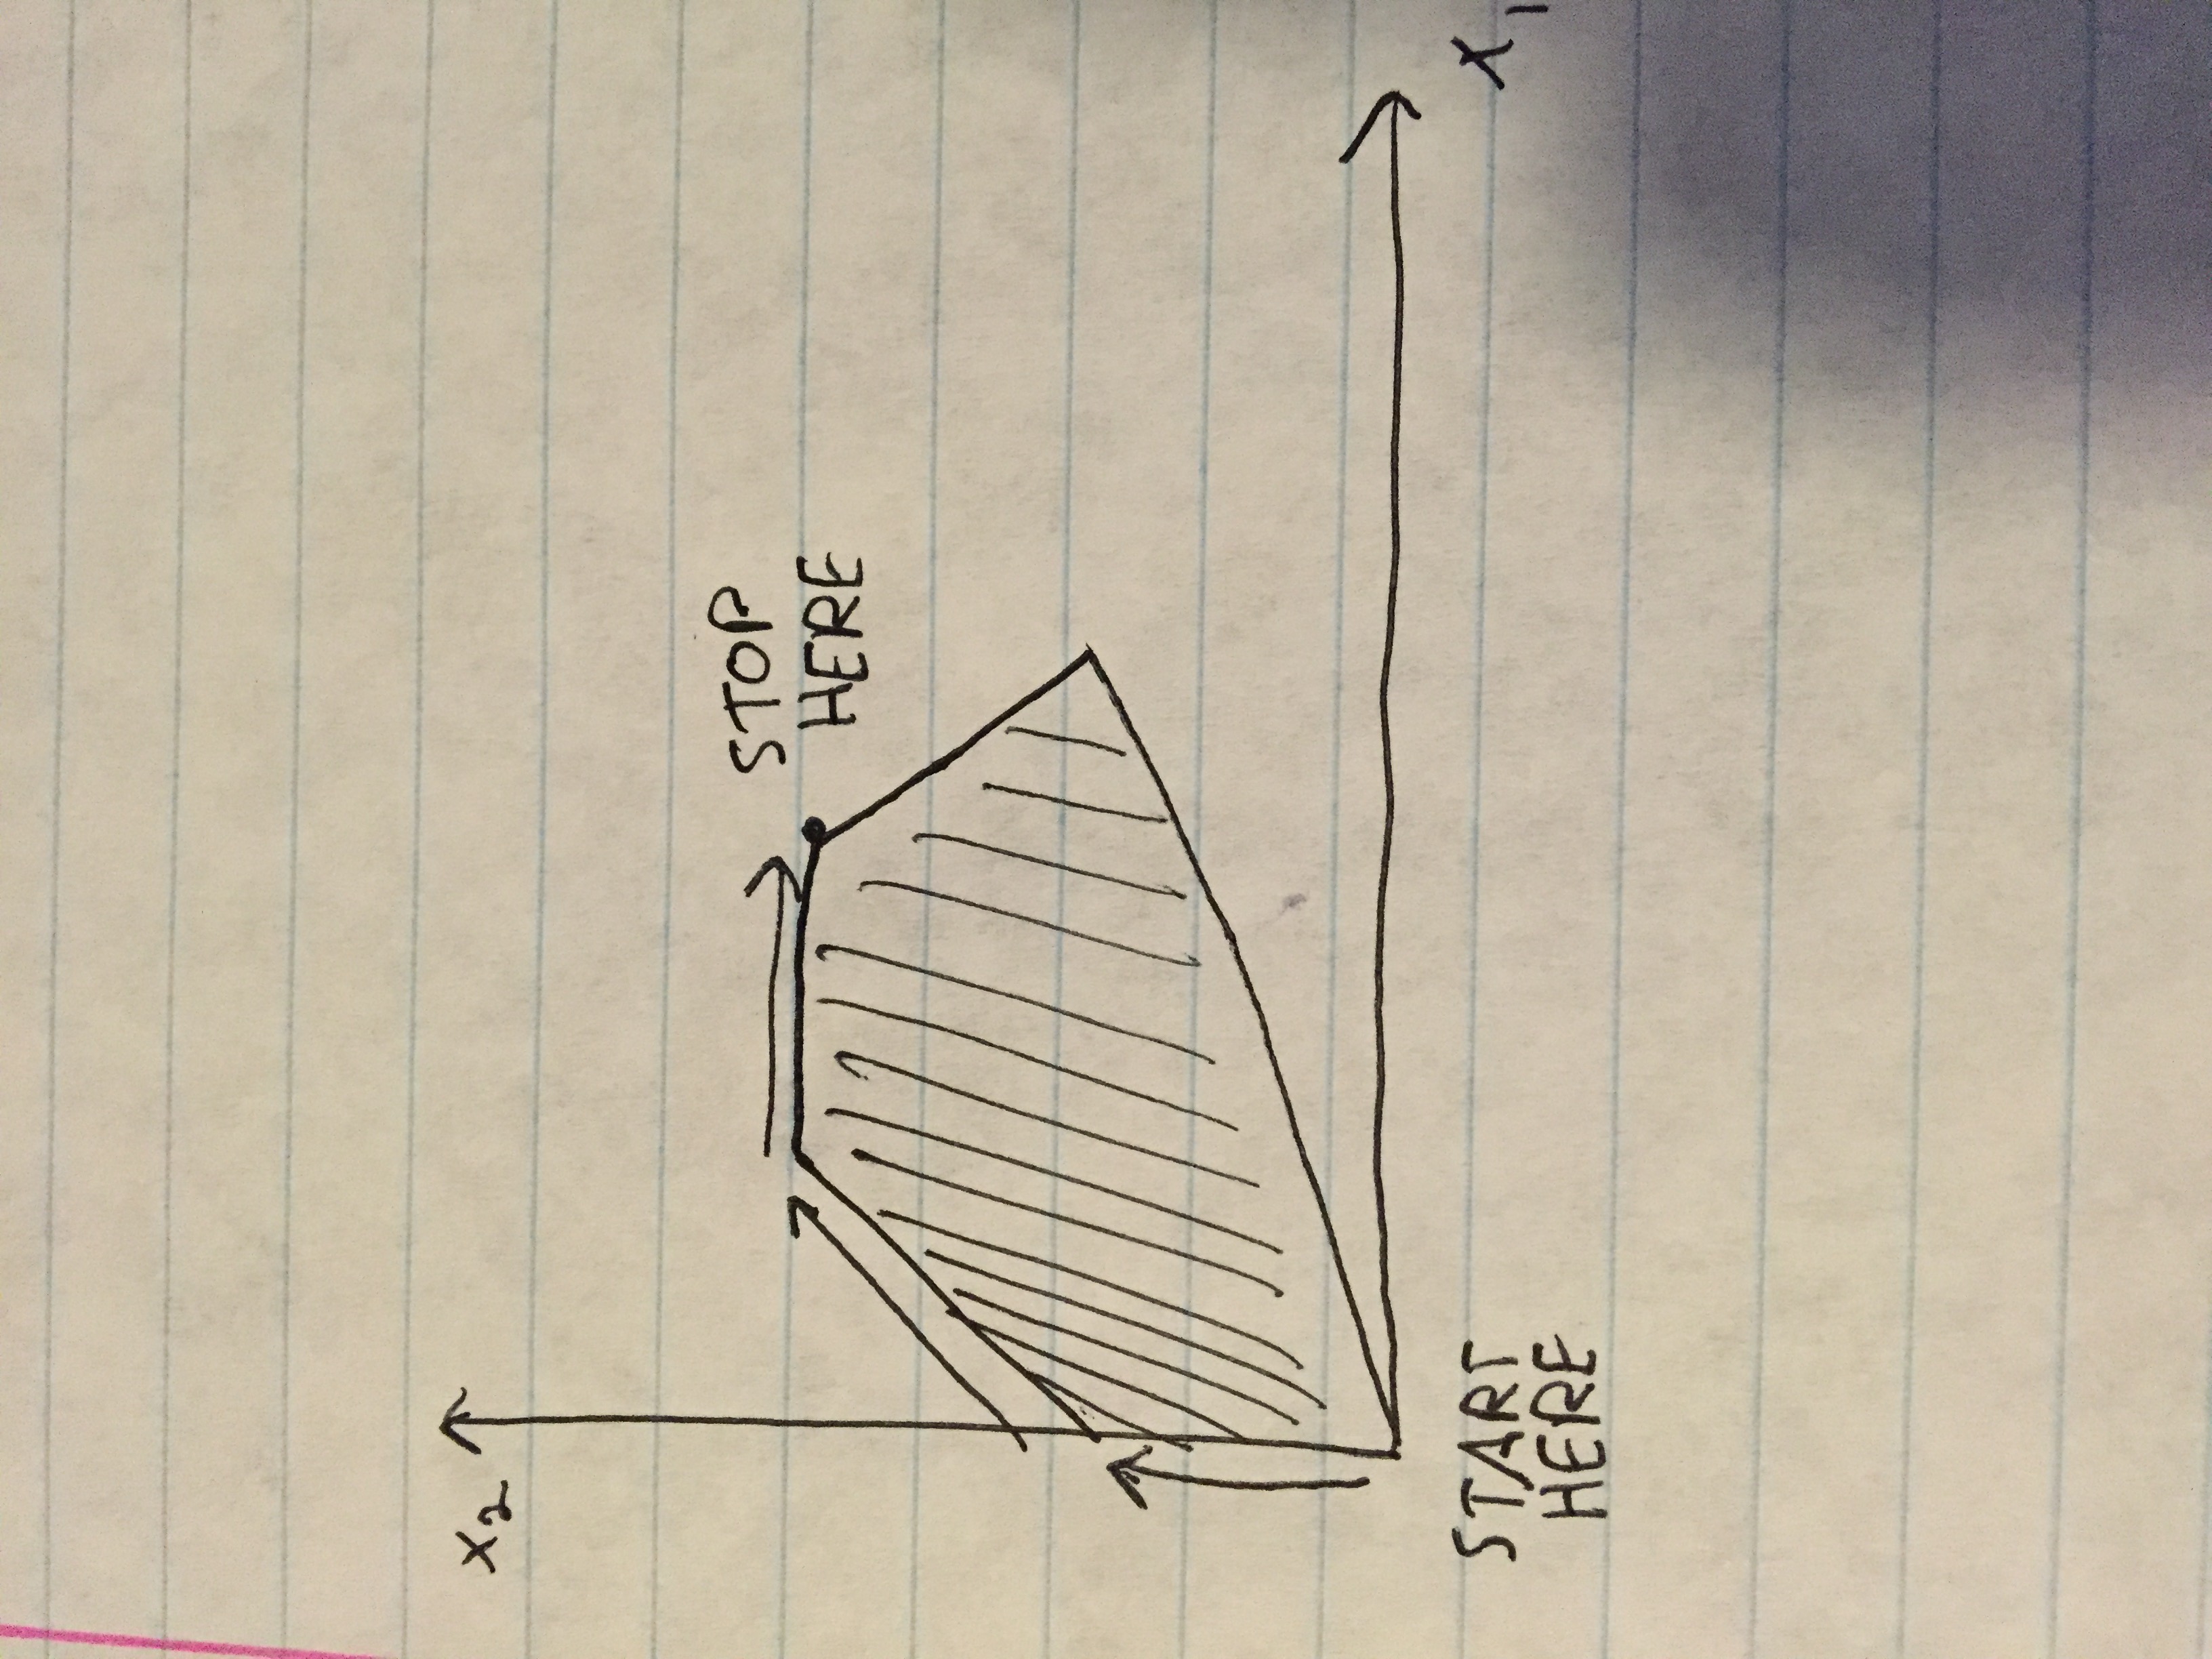 x₂
STOP
HERE
START
HERE
x₁